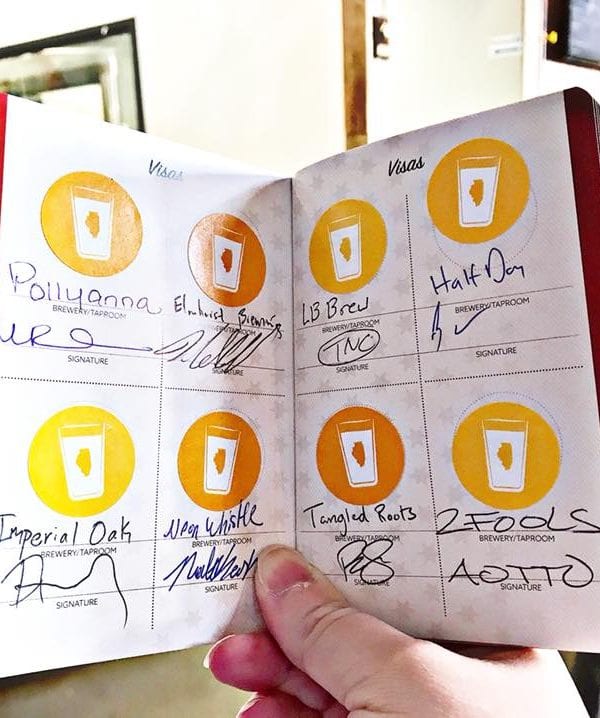 Visas
Pollyanna
BREWERY/TAPROOM
SIGNATURE
Elmhurst Brewing
SIGNATURE
Imperial Oak
BREWERY/TAPROOM
SIGNATURE
Neon Whistle
BREWERY/TAPROOM
SIGNATURE
Visas
LB Brew
BREWERY/TAPROOM
TNC
SIGNATURE
Half Day
BREWERY/TAPROOM
SIGNATURE
Tangled Roots
BREWERY/TAPROOM
SIGNATURE
2 FOOLS
BREWERY/TAPROOM
AOTTO
SIGNATURE